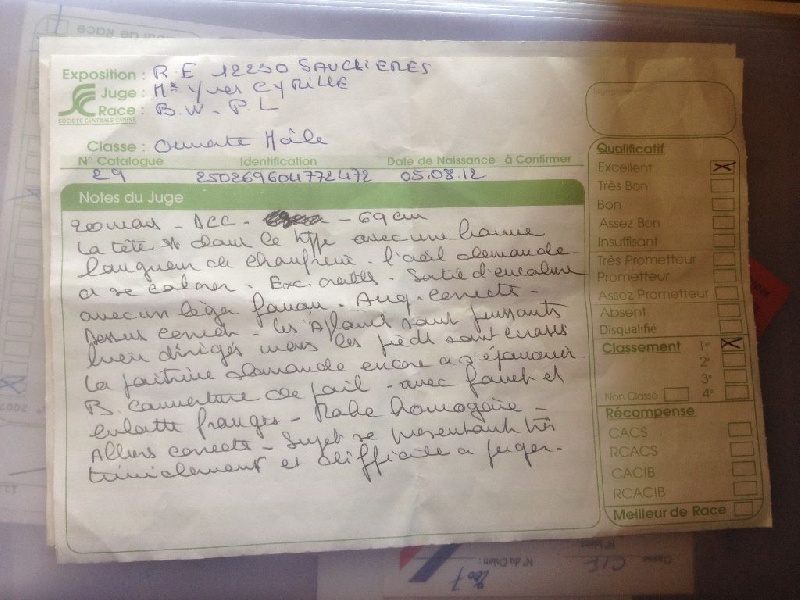 Exposition : R.E 12230 SAUCLIERES
Juge : Mr Yves CYRILLE
Race : B.W. P.L
SOCIETE CENTRALE CANINE
Classe : Ouverte Mâle
N° Catalogue Identification Date de Naissance à Confirmer
29 250269604772472 05.08.12
Notes du Juge
20 mois - DCC - - 69 cm
La tête est dans le type avec une bonne
longueur de chanfrein. l'oeil demande
a se colorer. Exc. oreilles. Sortie d'encolure
avec un léger fanon. Ang. corrects -
Dessus correct - les Aplombs sont puissants
bien dirigés mais les pieds sont écrasés
La poitrine demande encore a s'épanouir
B. couverture de poil - avec fouet et
culotte frangés - Robe homogène -
Allures correctes - Sujet se présentant très
timidement et difficile a juger.
Qualificatif
Excellent
Très Bon
Bon
Assez Bon
Insuffisant
Très Prometteur
Prometteur
Assez Prometteur
Absent
Disqualifié
Classement 1°
2°
3°
Non Classé 4°
Récompense
CACS
RCACS
CACIB
RCACIB
Meilleur de Race